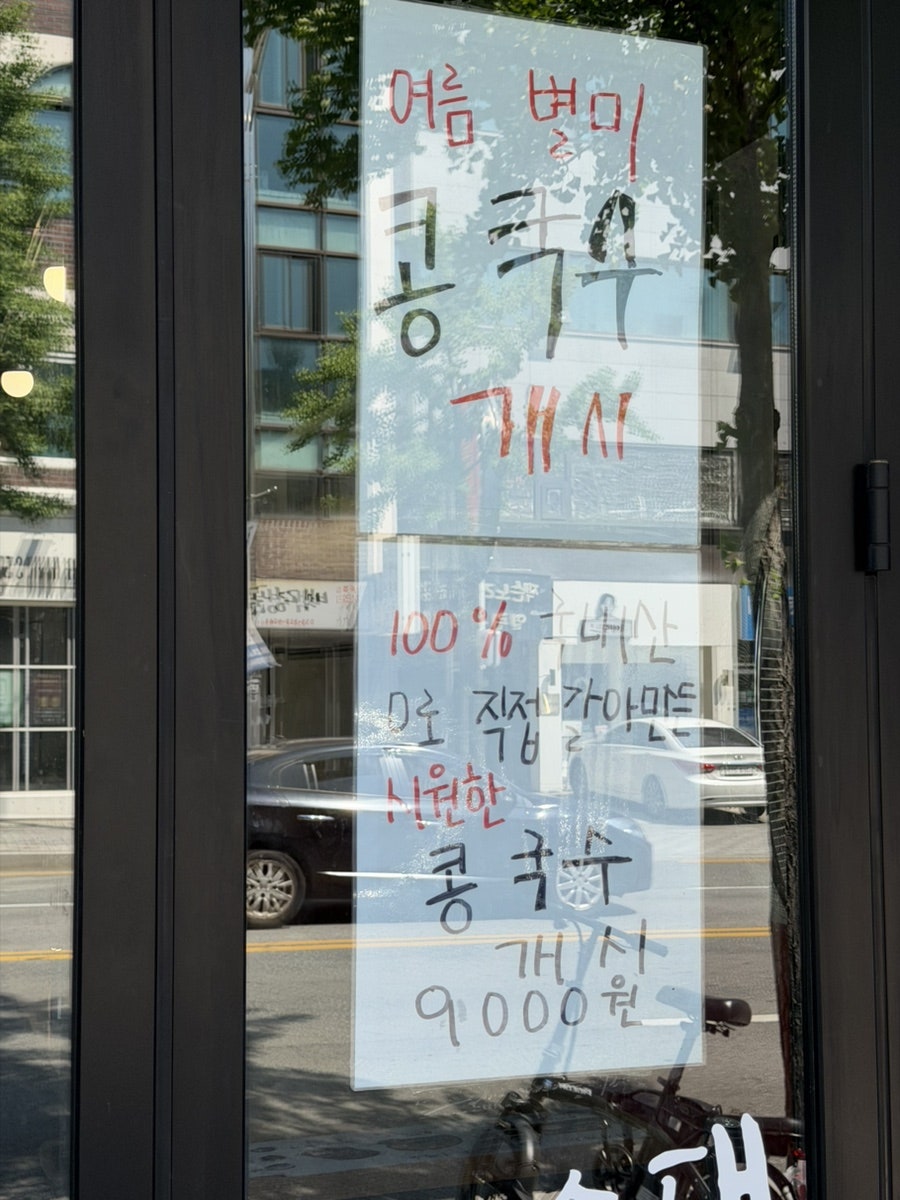 여름 별미
콩국수
개시
100% 국내산
로 직접 갈아만든
시원한
콩국수
개시
9000원